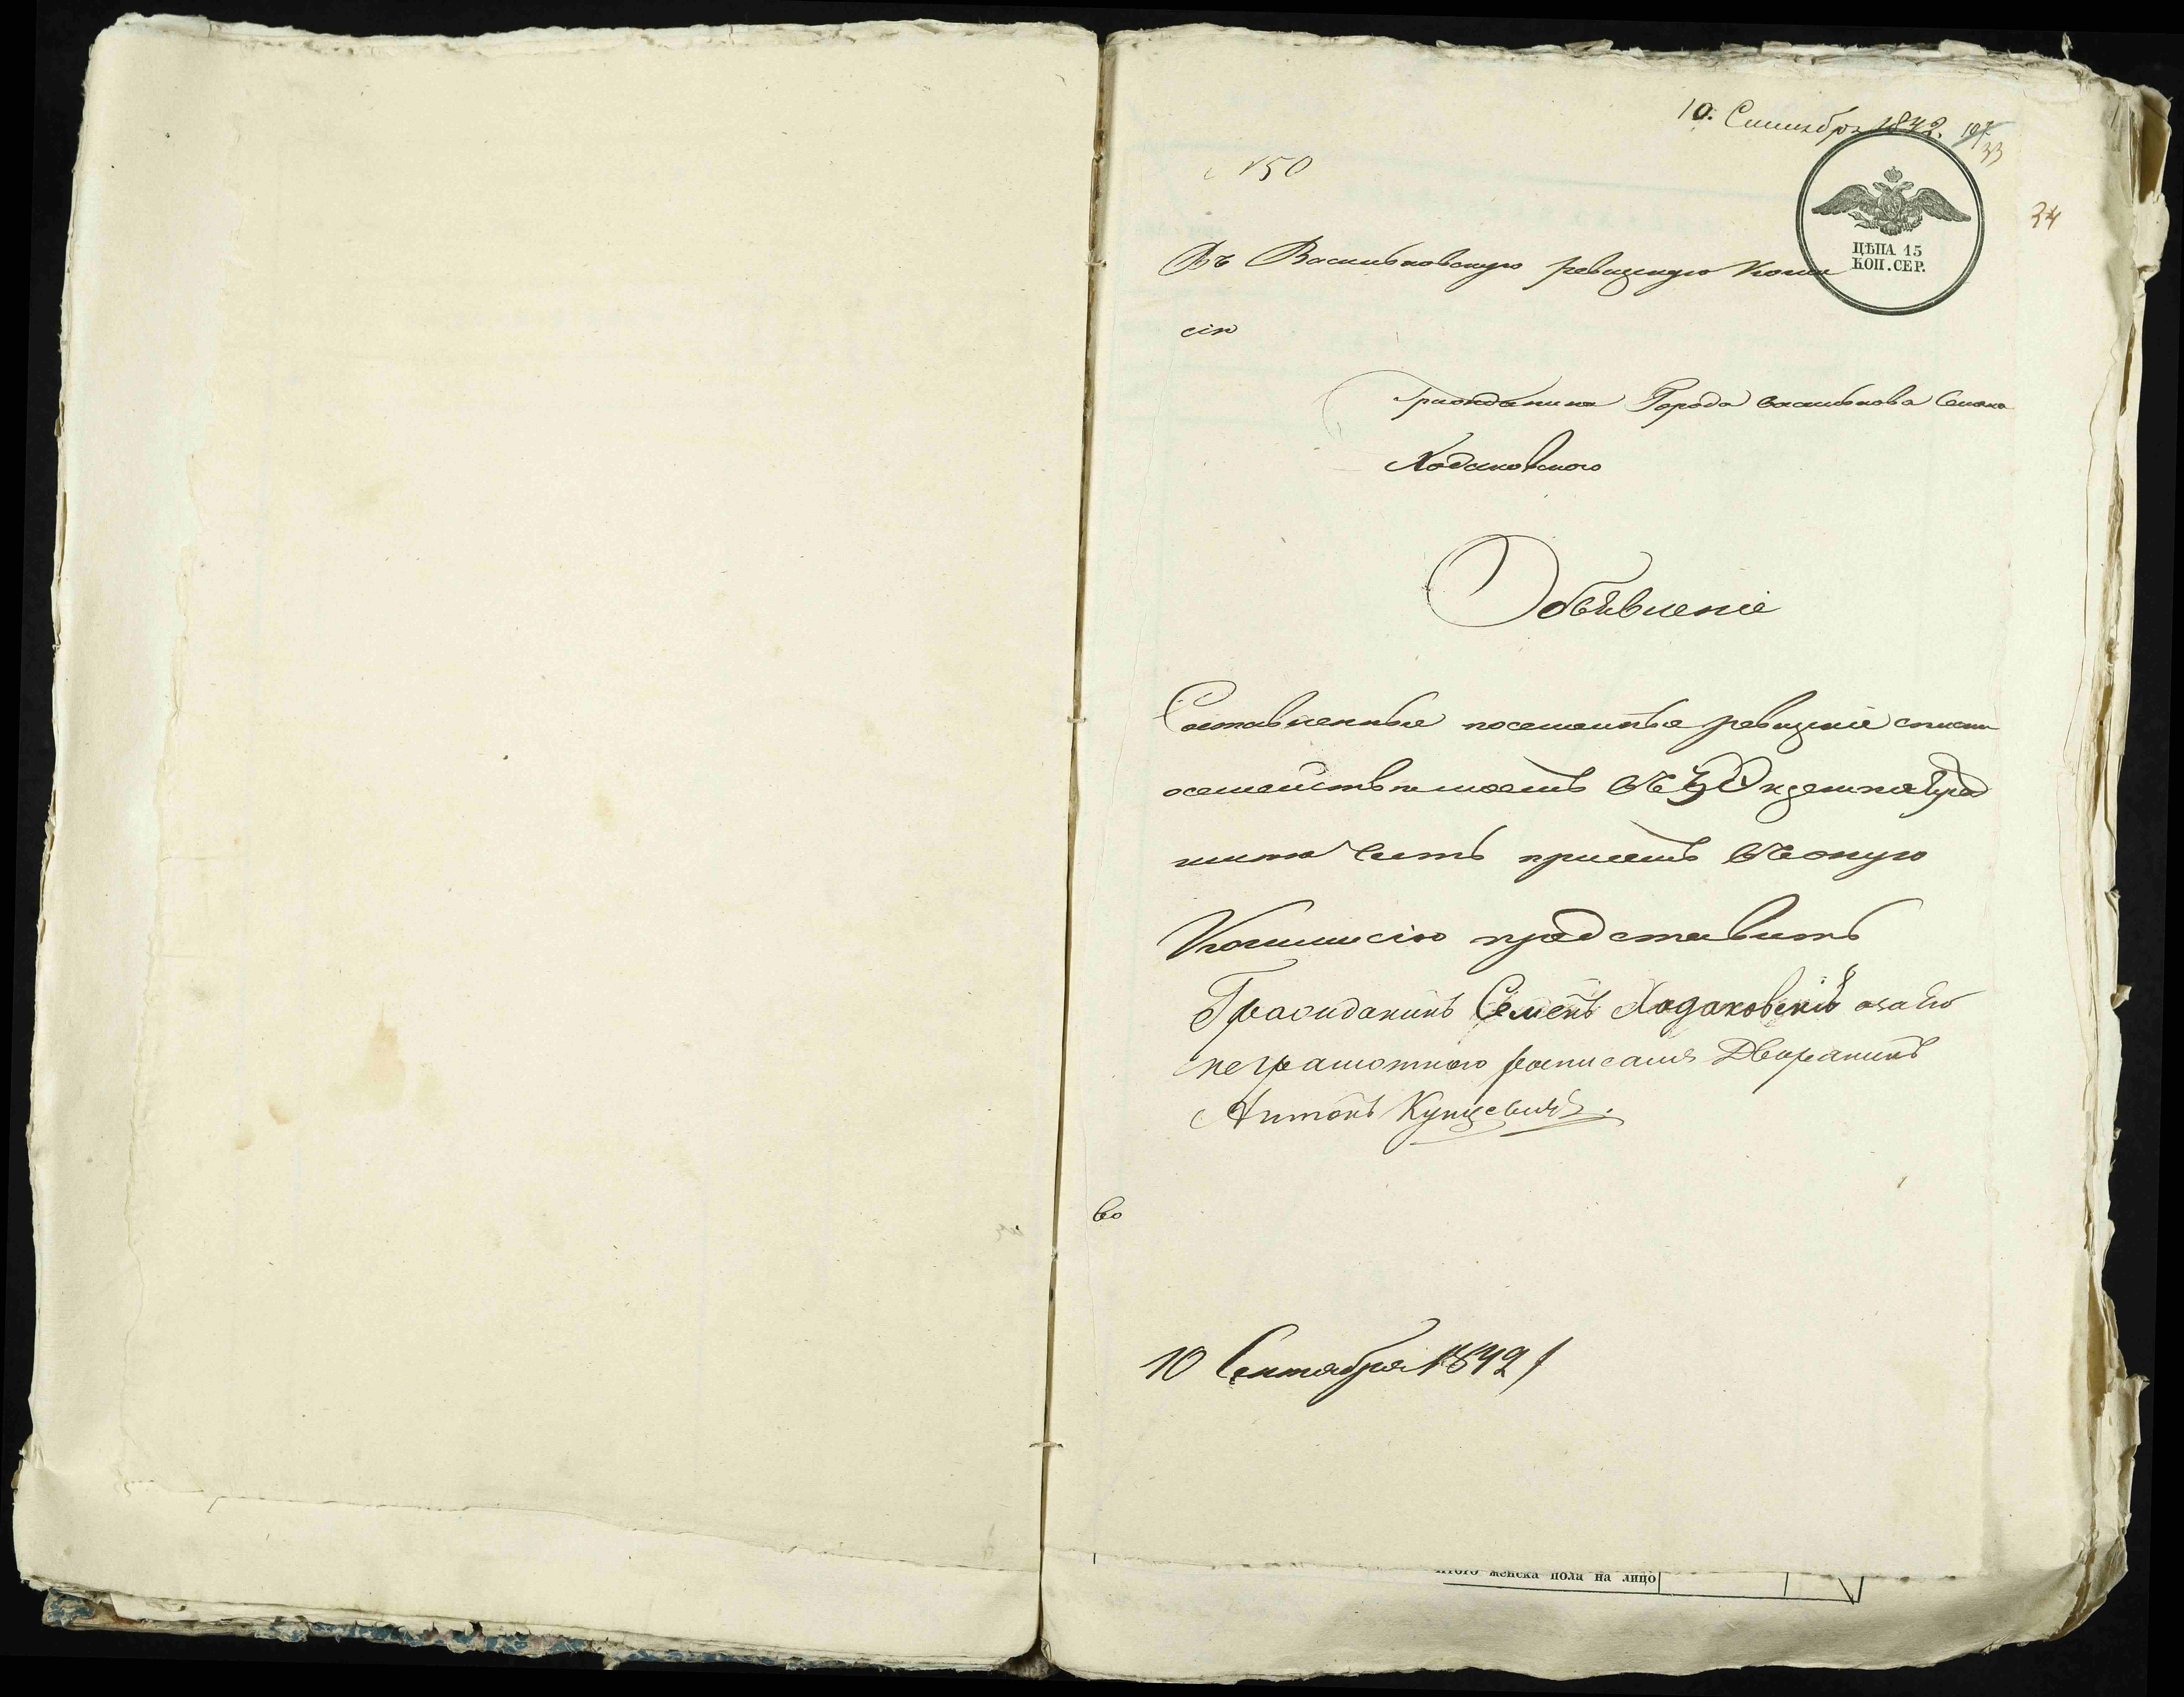 10. Сентября 1842.
33
№ 150
34
ЦѢНА 15
КОП. СЕР.
Въ Васильковскую ревизскую Коми
сію
Гражданина Города Василькова Семена
Ходаковского
Объявленіе
Составленные посемейные ревизкіе списки
осемействе моемъ въ экземпля
честь имеетъ въ оную
Коммисію представить
Гражданинъ Семенъ Ходаковскій а за его
неграмотного росписался Дворянинъ
Антонъ Кунцевичъ.
во
10 Сентября 1842
Итого женска пола на лицо